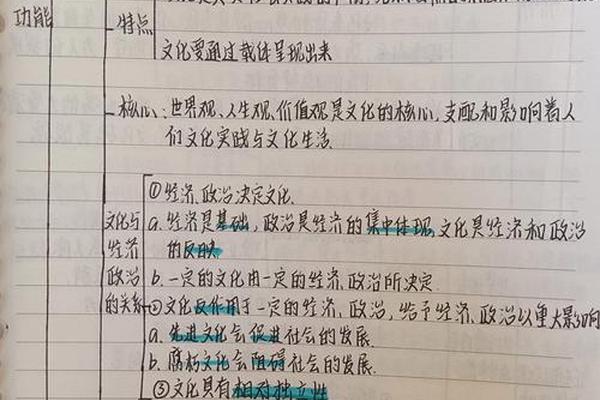 功能
特点
文化要通过载体呈现出来
核心:世界观、人生观、价值观是文化的核心,支配和影响着人
们文化实践与文化生活
①经济、政治决定文化.
文化与
经济
政治
的关系
a.经济是基础,政治是经济的集中体现,文化是经济和政治
的反映
b.一定的文化由一定的经济、政治所决定.
②文化反作用于一定的经济、政治,给予经济、政治以重大影响
a.先进文化会促进社会的发展.
b.腐朽文化会阻碍社会的发展.
③文化具有相对独立性